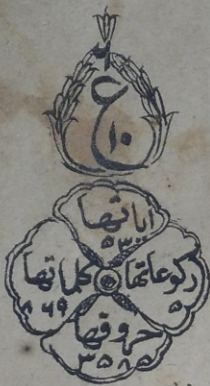 ع
١٠
اياتها
٥٣
ركوعاتها
٥
كلماتها
٨٦٩
حروفها
٣٥٨٥